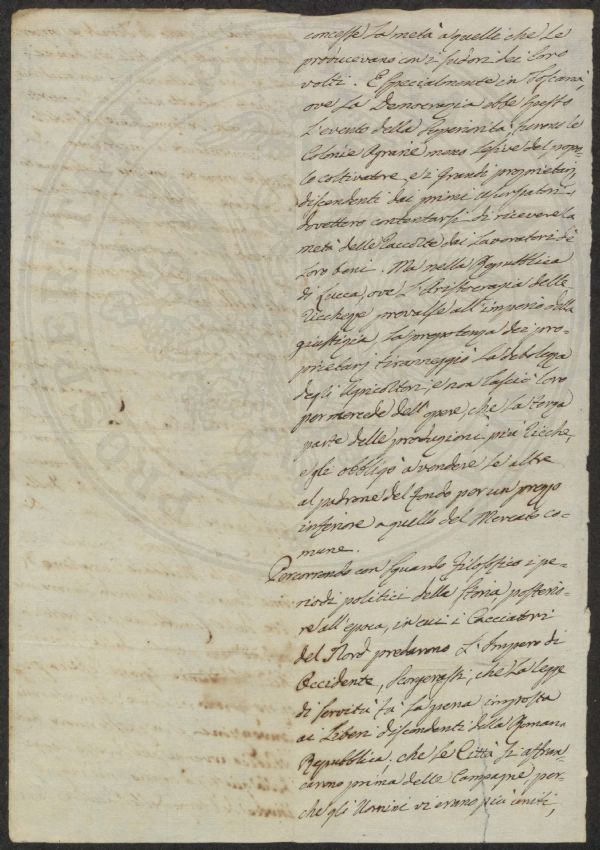 concesse la metà a quelli che le
producevano con i sudori dei loro
volti. E specialmente in Toscana,
ove la Democrazia ebbe spesso
l'evento della superiorità, furono le
Colonie Agrarie meno lesive del popo-
lo coltivatore, e i grandi proprietarj
discendenti dai primi usurpatori
dovettero contentarsi di ricevere la
metà delle raccolte dai lavoratori de
loro beni. Ma nella Repubblica
di Lucca, ove l'Aristocrazia delle
ricchezze prevalse all'imperio della
giustizia, la prepotenza dei pro-
prietarj tiranneggiò la debolezza
degli Agricoltori, e non lasciò loro
per mercede dell'opere, che la terza
parte delle produzioni più ricche,
e gli obbligò a vendere le altre
al padrone del fondo per un prezzo
inferiore a quello del Mercato co-
mune.
Percorrendo con sguardo filosofico i pe-
riodi politici della storia posterio-
re all'epoca, in cui i Cacciatori
del Nord predarono l'Impero di
Occidente, scorgeresti, che la legge
di servitù fù la pena imposta
ai liberi discendenti della Romana
Repubblica. che le Città si affran-
carono prima delle Campagne, per-
chè gli Uomini vi erano più uniti,